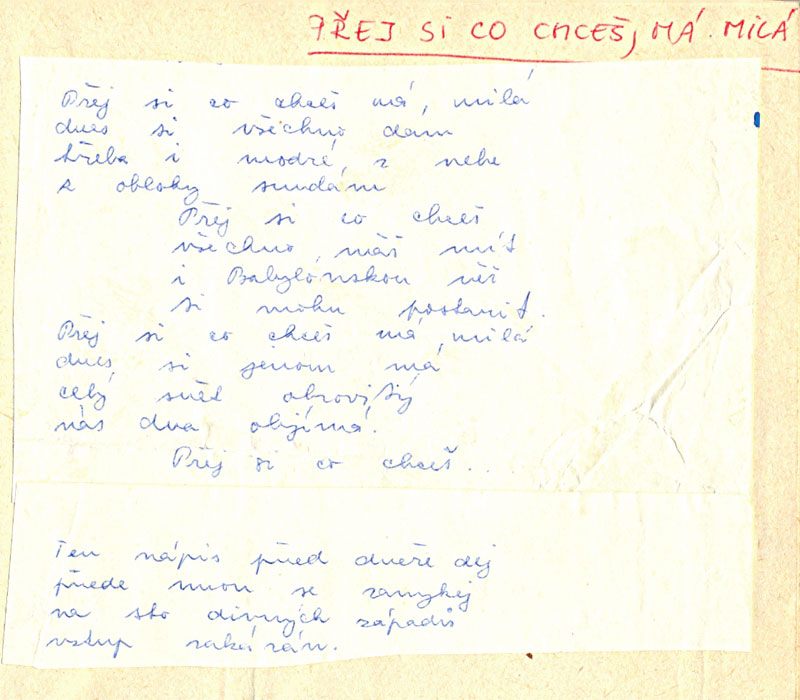 PŘEJ SI CO CHCEŠ, MÁ MILÁ
Přej si co chceš má, milá
dnes si všechno dam
třeba i modré, z nebe
z oblohy sundám
Přej si co chceš
všechno, máš mít
i Babylónskou věž
si mohu postavit.
Přej si co chceš má, milá
dnes, si jenom má
celý svět obrovitý
nás dva objímá.
Přej si co chceš..
Ten nápis před dveře dej
přede mnou se zamykej
na sto divných západů
vstup zakázán.